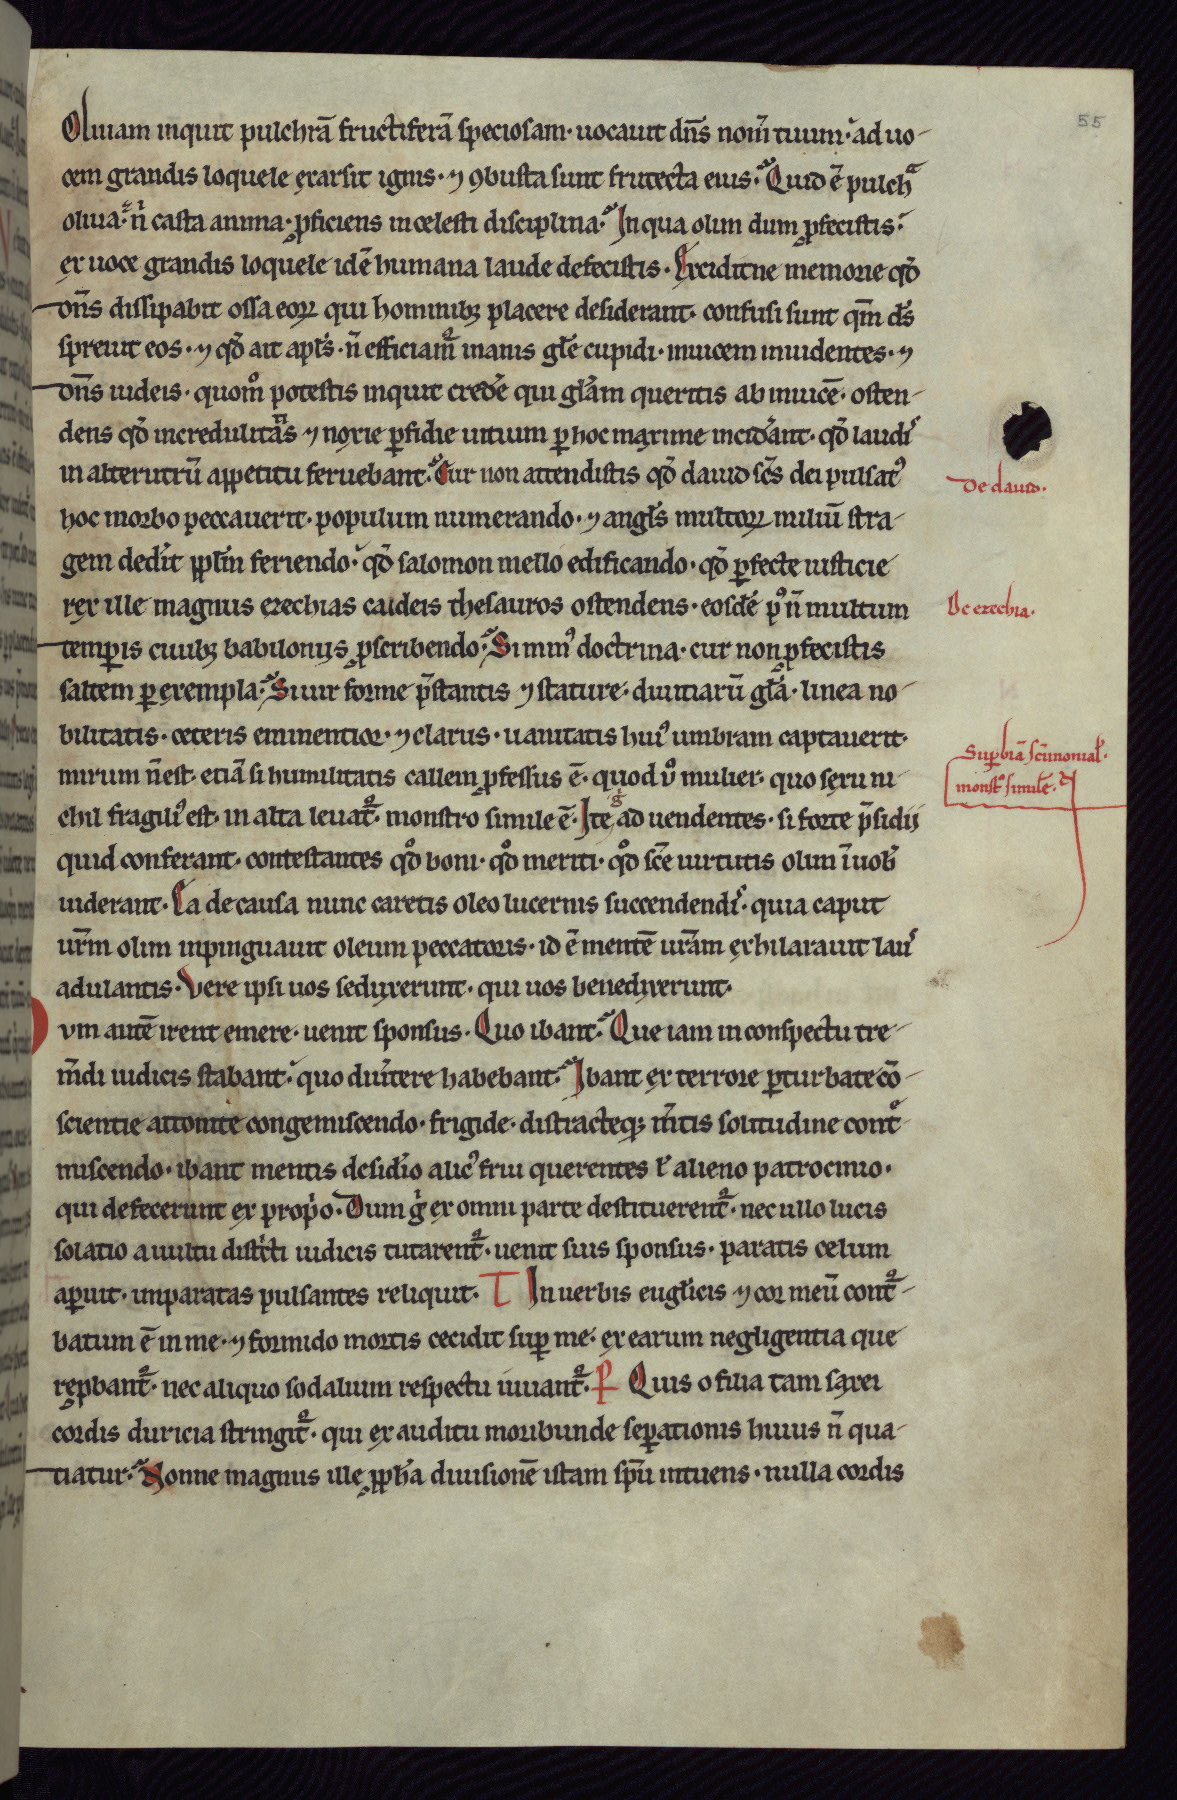 55
Oliuam inquit pulchrā fructiferā speciosam· uocauit dn̄s nom̄ tuum· ad uo-
cem grandis loquele exarsit ignis· ⁊ ꝯbusta sunt frutecta eius· Quid ē pulchͣ
oliua· nͥ casta anima· ꝓficiens in celesti disciplina· In qua olim dum ꝓfecistis·
ex uoce grandis loquele idē humana laude defecistis· Exciditne memorie qd̄
dn̄s dissipabit ossa eoꝝ qui hominibꝫ placere desiderant· confusi sunt qm̄ ds̄
spreuit eos· ⁊ qd̄ ait apls̄· n̄ efficiam̄ inanis glē cupidi· inuicem inuidentes· ⁊
dn̄s iudeis· quomͦ potestis inquit credē qui glām queritis ab inuicē· osten-
dens qd̄ incredulitatis ⁊ noxie ꝑfidie uitium ꝑ hoc maxime incid̄ant· qd̄ laudiͣ
in alterutrū appetitu feruebant· Cur non attendistis qd̄ dauid scs̄ dei pulsatꝰ
hoc morbo peccauerit· populum numerando· ⁊ angls̄ multoꝝ miliū stra-
gem dedit pplm̄ feriendo· qd̄ salomon mello edificando· qd̄ ꝑfecte iusticie
rex ille magnus ezechias caldeis thesauros ostendens· eosdē pꝰ n̄ multum
temꝑis ciuibꝫ babilonijs ꝓscribendo· Si minꝰ doctrina· cur non ꝓfecistis
saltem ꝑ exempla· Si uir forme p̄stantis ⁊ stature· diuitiarū glā· linea no-
bilitatis· ceteris eminentior· ⁊ clarus· uanitatis huiꝰ umbram captauerit·
mirum n̄ est· etiā si humilitatis callem ꝓfessus ē· quod ů mulier· quo sexu ni-
chil fragiliꝰ est· in alta leuat᷑· monstro simile ē· Ite gͥ ad uendentes· si forte p̄sidij
quid conferant· contestantes qd̄ boni· qd̄ meriti· qd̄ scē uirtutis olim ī uob̄
uiderant· Ea de causa nunc caretis oleo lucernis succendendiͣ· quia caput
ur̄m olim inpinguauit oleum peccatoris· id ē mentē urām exhilarauit lauͣ
adulantis· Vere ipsi uos seduxerunt· qui uos benedixerunt·
Dvm autē irent emere· uenit sponsus· Quo ibant· Que iam in conspectu tre-
m̄di iudicis stabant· quo diu̇tere habebant· Ibant ex terrore ꝑturbate cō-
scientie attonite congemiscendo· frigide· distracteqꝫ m̄tis solitudine cont᷑-
miscendo· ibant mentis desid̄io alicꝰ frui querentes ł alieno patrocinio·
qui defecerunt ex propͦo· Dum gͥ ex omni parte destituerent᷑· nec ullo lucis
solatio a uultu distͥcti iudicis tutarent᷑· uenit suus sponsus· paratis celum
aꝑuit· imparatas pulsantes reliquit· T In uerbis eugl̄icis ⁊ cor meū cont᷑-
batum ē in me· ⁊ formido mortis cecidit suꝑ me· ex earum negligentia que
reꝓbant᷑· nec aliquo sodalium respectu iuuant᷑· P Quis o filia tam saxei
cordis duricia stringit᷑· qui ex auditu moribunde seꝑationis huius n̄ qua-
tiatur· Nonne magnus ille ꝓph̄a diuisionē istam spū intuens· nulla cordis
De dauid·
De ezechia·
Suꝑbiā sc̄imonial̄·
monstͦ simile·